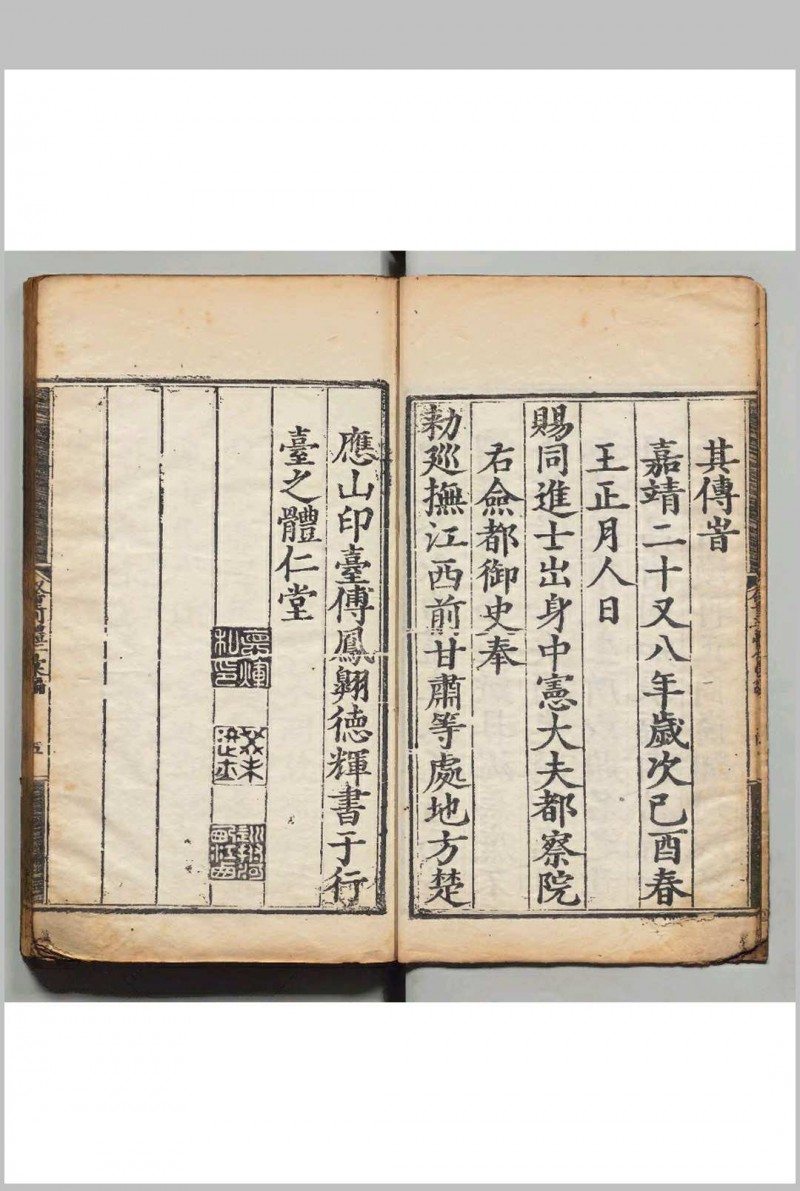 其傳旹
嘉靖二十又八年歲次己酉春
王正月人日
賜同進士出身中憲大夫都察院
右僉都御史奉
勑廵撫江西前甘肅等處地方楚
應山印臺傅鳳翱德輝書于行
臺之體仁堂